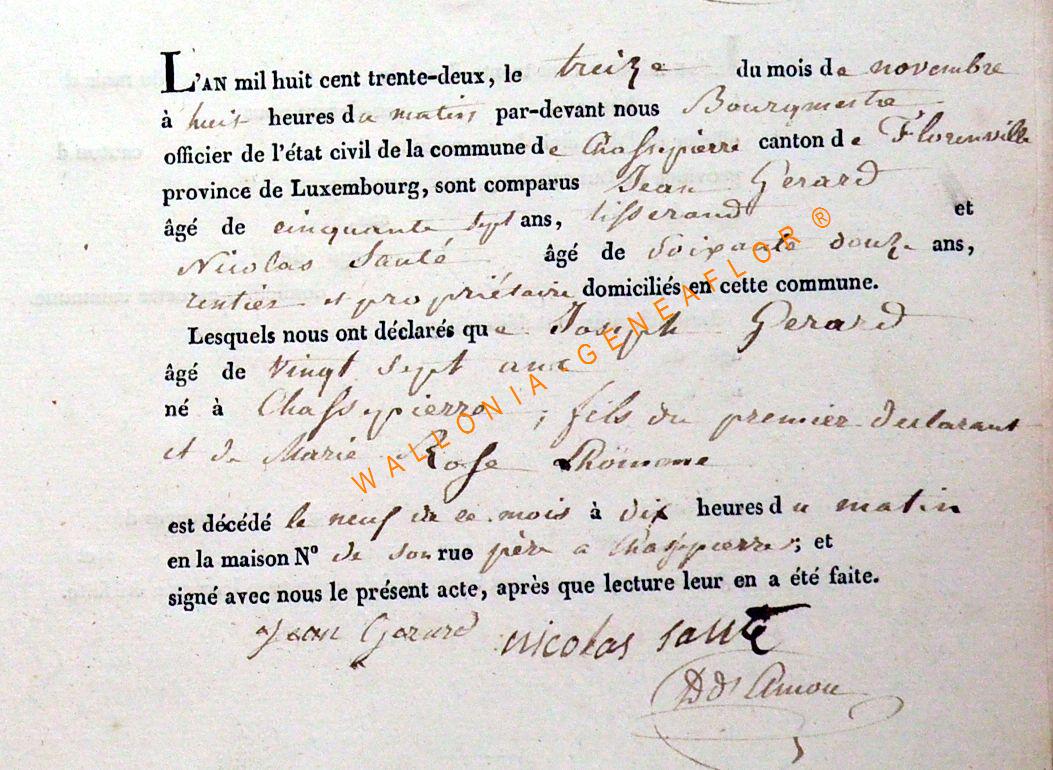 L'AN mil huit cent trente-deux, le treize du mois de novembre
à huit heures du matin par-devant nous Bourgmestre
officier de l'état civil de la commune de Chassepierre canton de Florenville
province de Luxembourg, sont comparus Jean Gerard
âgé de cinquante sept ans, tisserand et
Nicolas Santé âgé de Soixante douze ans,
rentier et propriétaire domiciliés en cette commune.
Lesquels nous ont déclarés que Joseph Gerard
âgé de vingt sept ans
né à Chassepierre, fils du premier declarant
et de Marie Rose
est décédé le neuf de ce mois à dix heures du matin
en la maison N° de son rue père a Chassepierre; et
signé avec nous le présent acte, après que lecture leur en a été faite.
Jean Gerard nicolas santé
WALLONIA-GENEAFLOR ®